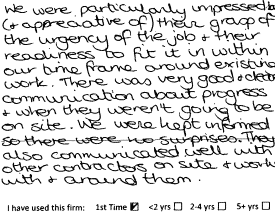 We were particularly impressed b
(& appreciative of) their grasp of
the urgency of the job & their
readiness to fit it in within
our time frame around existing
work. There was very good & clea
communication about progress
& when they weren't going to be
on site. We were kept informed
so there were no surprises. They
also communicated well with
other contractors on site & work
with & around them.
I have used this firm: 1st Time ☑ <2 yrs ☐ 2-4 yrs ☐ 5+ yrs ☐